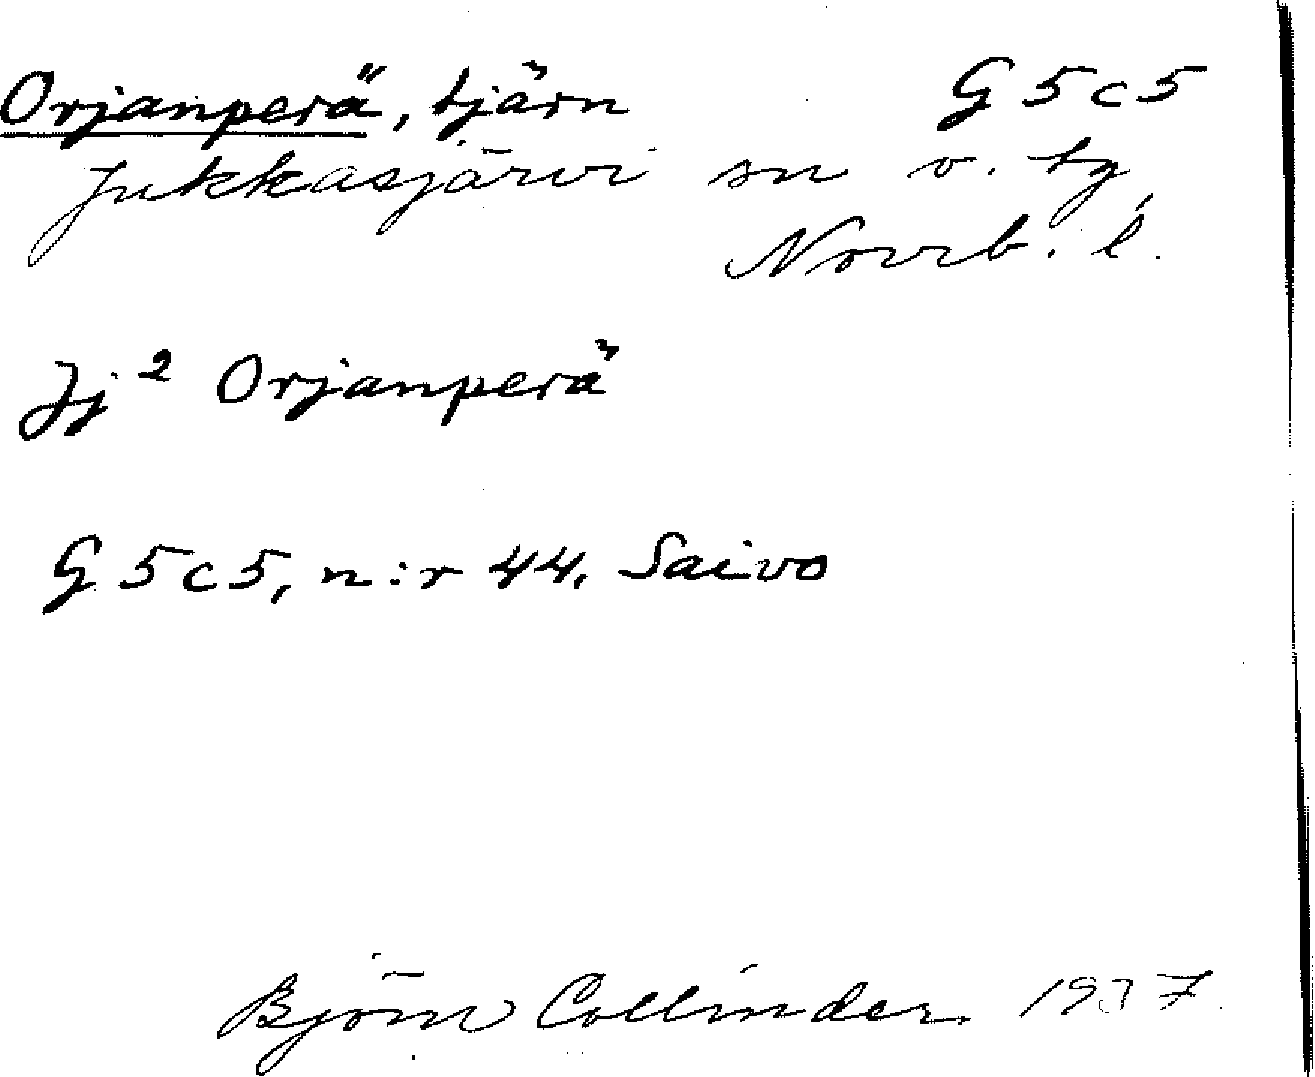 Orjanperä, tjärn G5c5
Jukkasjärvi sn v. tg
Norrb. l.
Jj² Orjanperä
G5c5, n:r 44, Saivo
Björn Collinder 1937